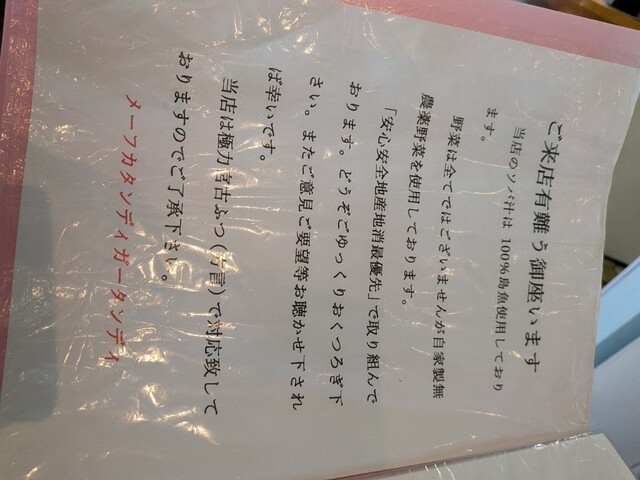 ご来店有難う御座います
当店のソバ汁は 100%島魚使用しており
ます。
野菜は全てではございませんが自家製無
農薬野菜を使用しております。
「安心安全地産地消最優先」で取り組んで
おります。どうぞごゆっくりおくつろぎ下
さい。またご意見ご要望等お聴かせ下され
ば幸いです。
当店は極力宮古ふつ(方言)で対応致して
おりますのでご了承下さい。
メーフカタンディガータンディ